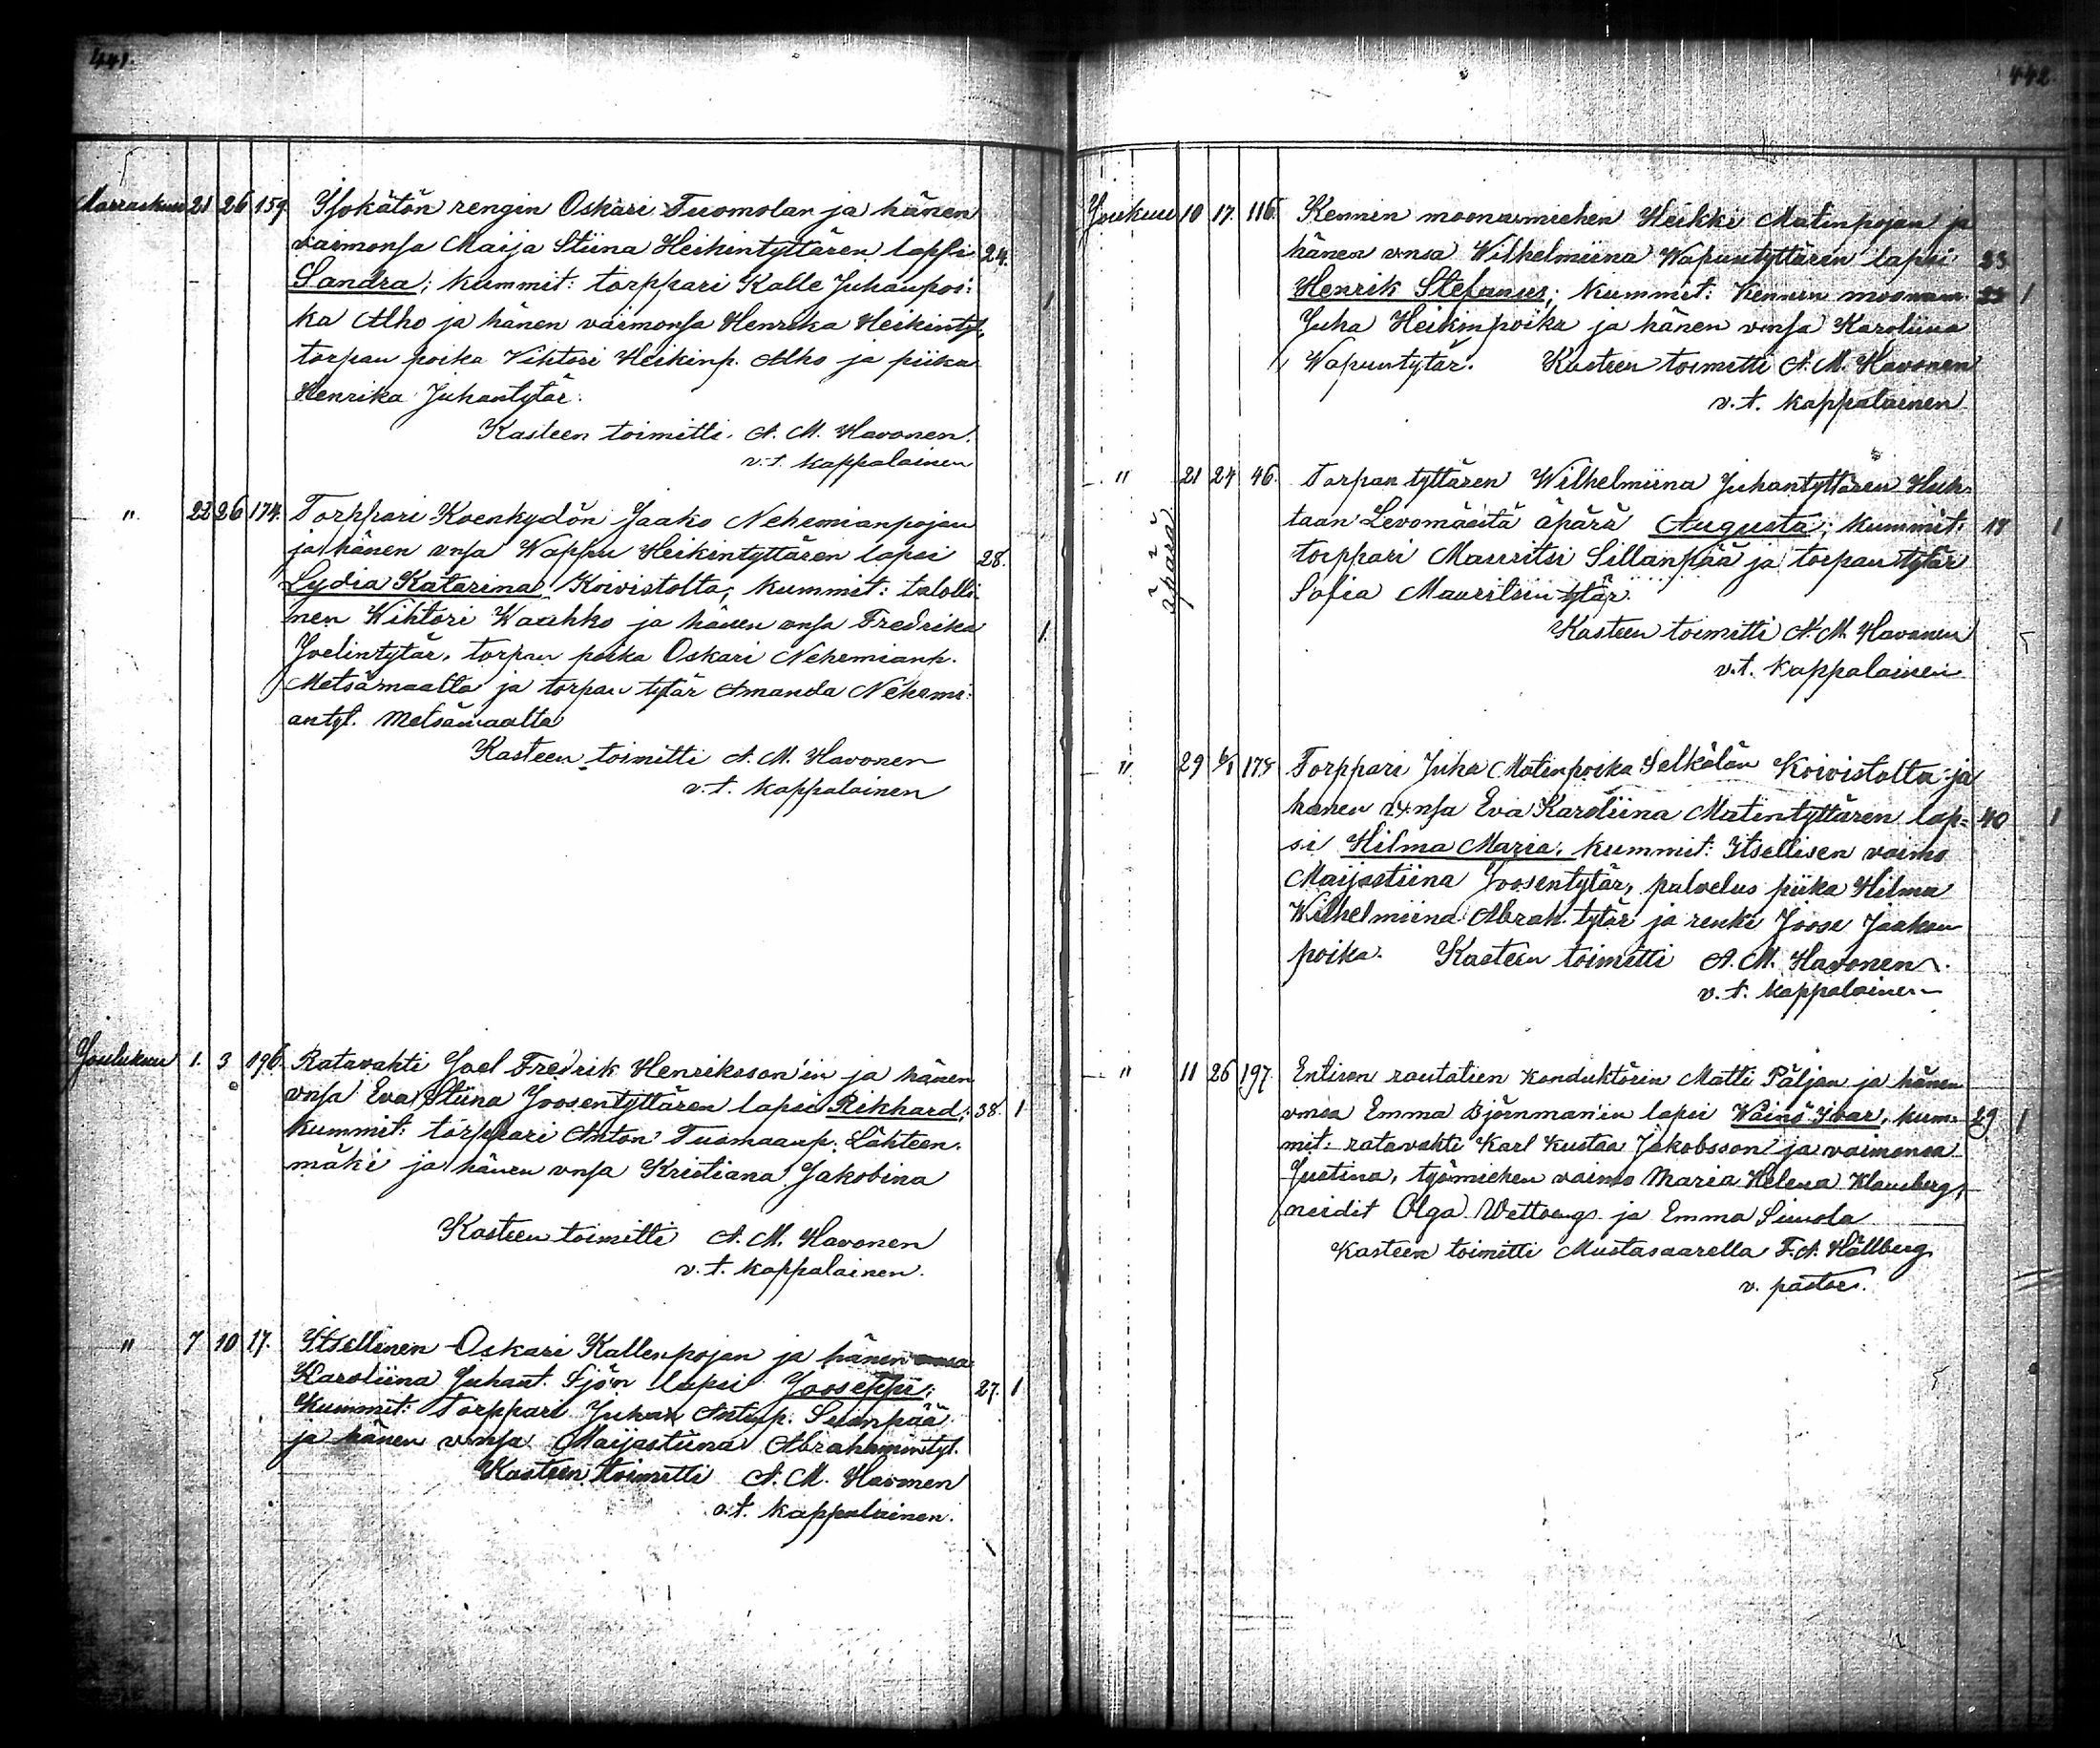 441.
Marraskuu 21 26 159. Isokätön rengin Oskari Tuomolan ja hänen
vaimonsa Maija Stiina Heikintyttären lapsi 24.
Sandra; kummit: torppari Kalle Juhanpoi: 1
ka Alho ja hänen vaimonsa Henrika Heikintyt.
torpan poika Vihtori Heikinp. Alho ja piika
Henrika Juhantytär.
Kasteen toimitti. A. M. Havonen.
v.t. kappalainen
" 22 26 174. Torppari Koenkydön Jaako Nehemianpojan
ja hänen vnsa Wappu Heikintyttären lapsi 28.
Lydia Katarina Koivistolta; kummit: talolli-
nen Wihtori Waahko ja hänen vnsa Fredrika 1
Joelintytär, torpan poika Oskari Nehemianp.
Metsämaalta ja torpan tytär Amanda Nehemi:
antyt. Metsämaalta
Kasteen toimitti A. M. Havonen
v.t. kappalainen
Joulukuu 1. 3 196. Ratavahti Joel Fredrik Henriksson'in ja hänen
vnsa Eva Stiina Joosentyttären lapsi Rikhard; 38. 1
kummit: torppari Anton Tuomaanp. Lähteen-
mäki ja hänen vnsa Kristiana Jakobina
Kasteen toimitti A. M. Havonen
v.t. kappalainen.
" 7 10 17. Itsellinen Oskari Kallenpojan ja hänen
Karoliina Juhant. Sjön lapsi Jooseppi; 27. 1
Kummit: Torppari Juhan Antinp.
ja hänen vmnsa Maijastiina Abrahamintyt.
Kasteen toimitti A. M. Havonen
v.t. kappalainen.
442
Joukuu 10 17. 116. Kennin moonamiehen Heikki Matinpojan ja
hänen vnsa Wilhelmiina Wapuntyttären lapsi 33
Henrik Stefanus; kummit: Kennin moonam. 1
Juha Heikinpoika ja hänen vnsa Karoliina
Wapuntytär. Kasteen toimitti A. M. Havonen
v.t. kappalainen
" 21 24 46. Torpan tyttären Wilhelmiina Juhantyttären Huh-
taan Levomäestä äpärä Augusta; kummit: 18 1
torppari Mauritsi Sillanpää ja torpan tytär
Sofia Mauritsintytär.
äpärä
Kasteen toimitti A. M. Havonen
v.t. kappalainen
" 29 6/1 178 Torppari Juha Matinpoika Selkälän Koivistolta ja
hänen v:nsa Eva Karoliina Matintyttären lap= 40 1
si Hilma Maria. kummit: Itsellisen vaimo
Maijastiina Joosentytär, palvelus piika Hilma
Wilhelmiina Abrah. tytär ja renki Joose Jaakon
poika. Kasteen toimitti A. M. Havonen.
v.t. kappalainen
" 11 26 197. Entisen rautatien konduktörin Matti Päljan ja hänen
vmsa Emma Björnman'in lapsi Wäinö Ivar, kum= 29 1
mit: ratavahti Karl Kustaa Jakobsson ja vaimonsa
Justina, työmiehen vaimo Maria Helena Klausberg,
neidit Olga ja Emma
Kasteen toimitti Mustasaarella F. A. Hällberg
v. pastori.